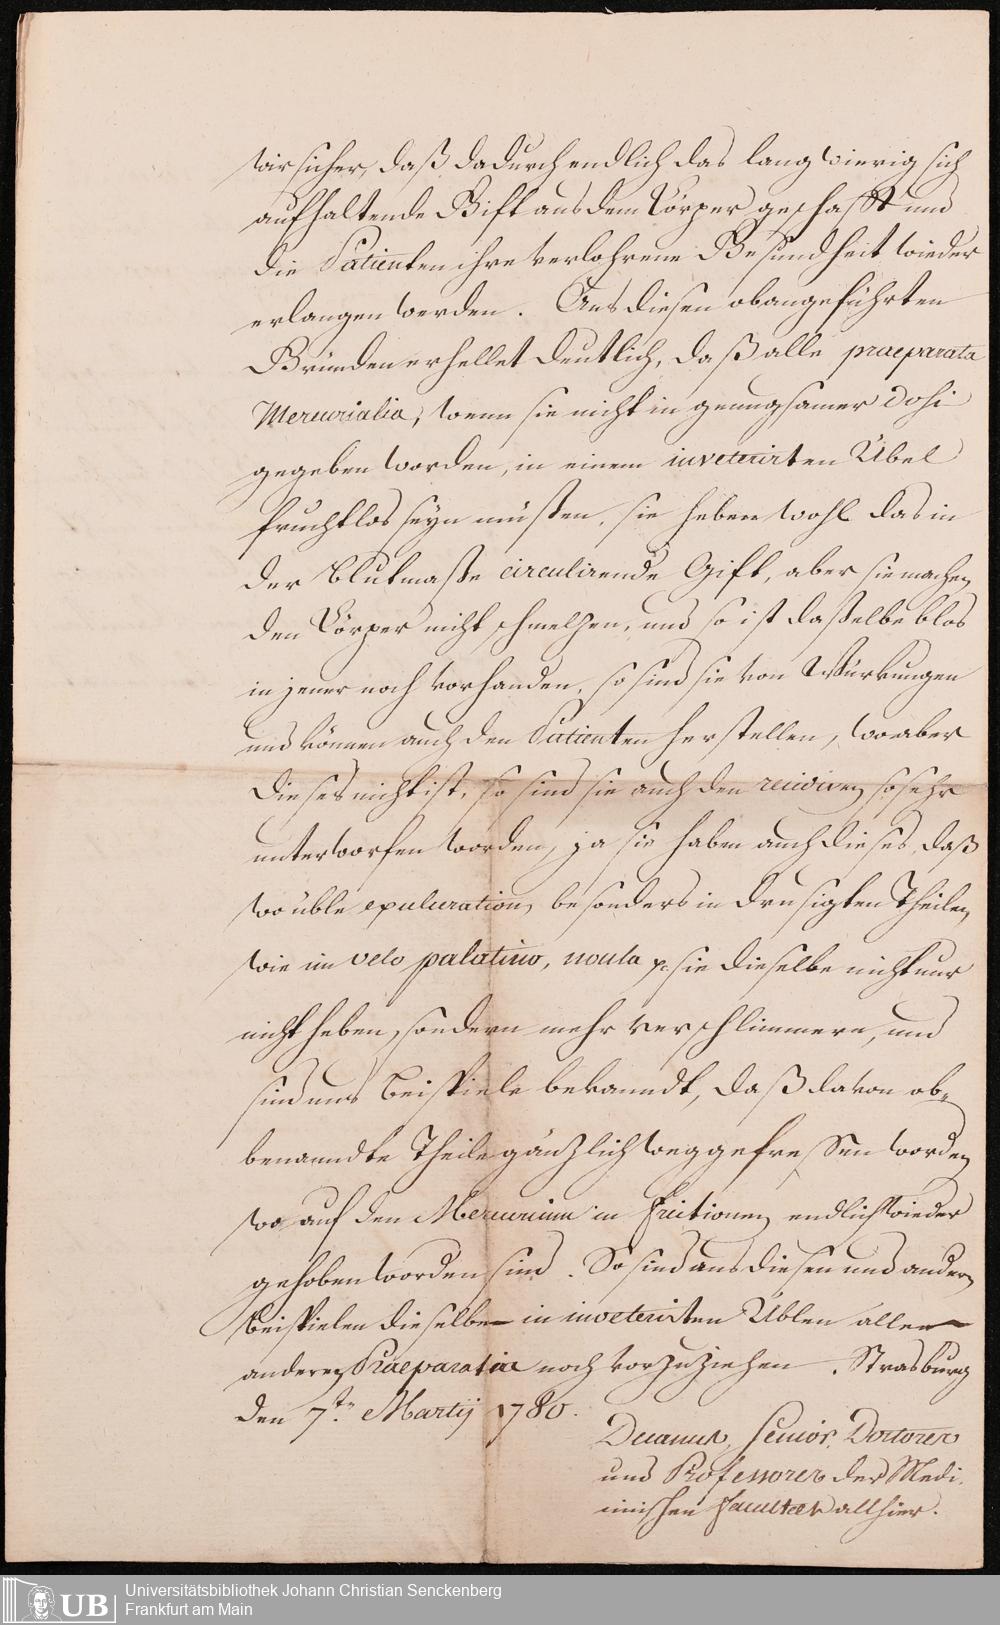 wir sicher, daß dadurch endlich das langwierig sich
aufhaltende Gift aus dem Körper geschafft und
die Patienten ihre verlohrene Gesundheit wieder
erlangen werden. Aus diesen obangeführten
Gründen erhellet deutlich, daß alle praeparata
Mercurialia, wenn sie nicht in genugsamer Dosi
gegeben worden, in einem inveterirten Übel
fruchtlos seyn müßten, sie heben wohl das in
der Blutmaße circulirende Gift, aber sie machen
den Körper nicht schmelzen, und so ist daßelbe blos
in jener noch vorhanden, so sind sie von Würkungen
und können auch den Patienten herstellen, wo aber
dieses nicht ist, so sind sie auch den recidiven so sehr
unterworfen worden, ja sie haben auch dieses, daß
wo üble exulceration, besonders in drusigten Theilen,
wie im velo palatino, uvula p. sie dieselbe nicht nur
nicht heben, sondern mehr verschlimmern, und
sind uns Beispiele bekanndt, daß davon ob-
benanndte Theile gänzlich weggefressen worden
wo auf den Mercurium in frictionen endlich wieder
gehoben worden sind. So sind aus diesen und andern
Beispielen dieselbe in inveterirten Üblen allen
anderen Praeparatia noch vorzuziehen. Strasburg
den 7ten Martij 1780.
Decanus, Senior, Doctores
und Professores der Medi-
cinischen Facultaet allhier.
UB Universitätsbibliothek Johann Christian Senckenberg
Frankfurt am Main